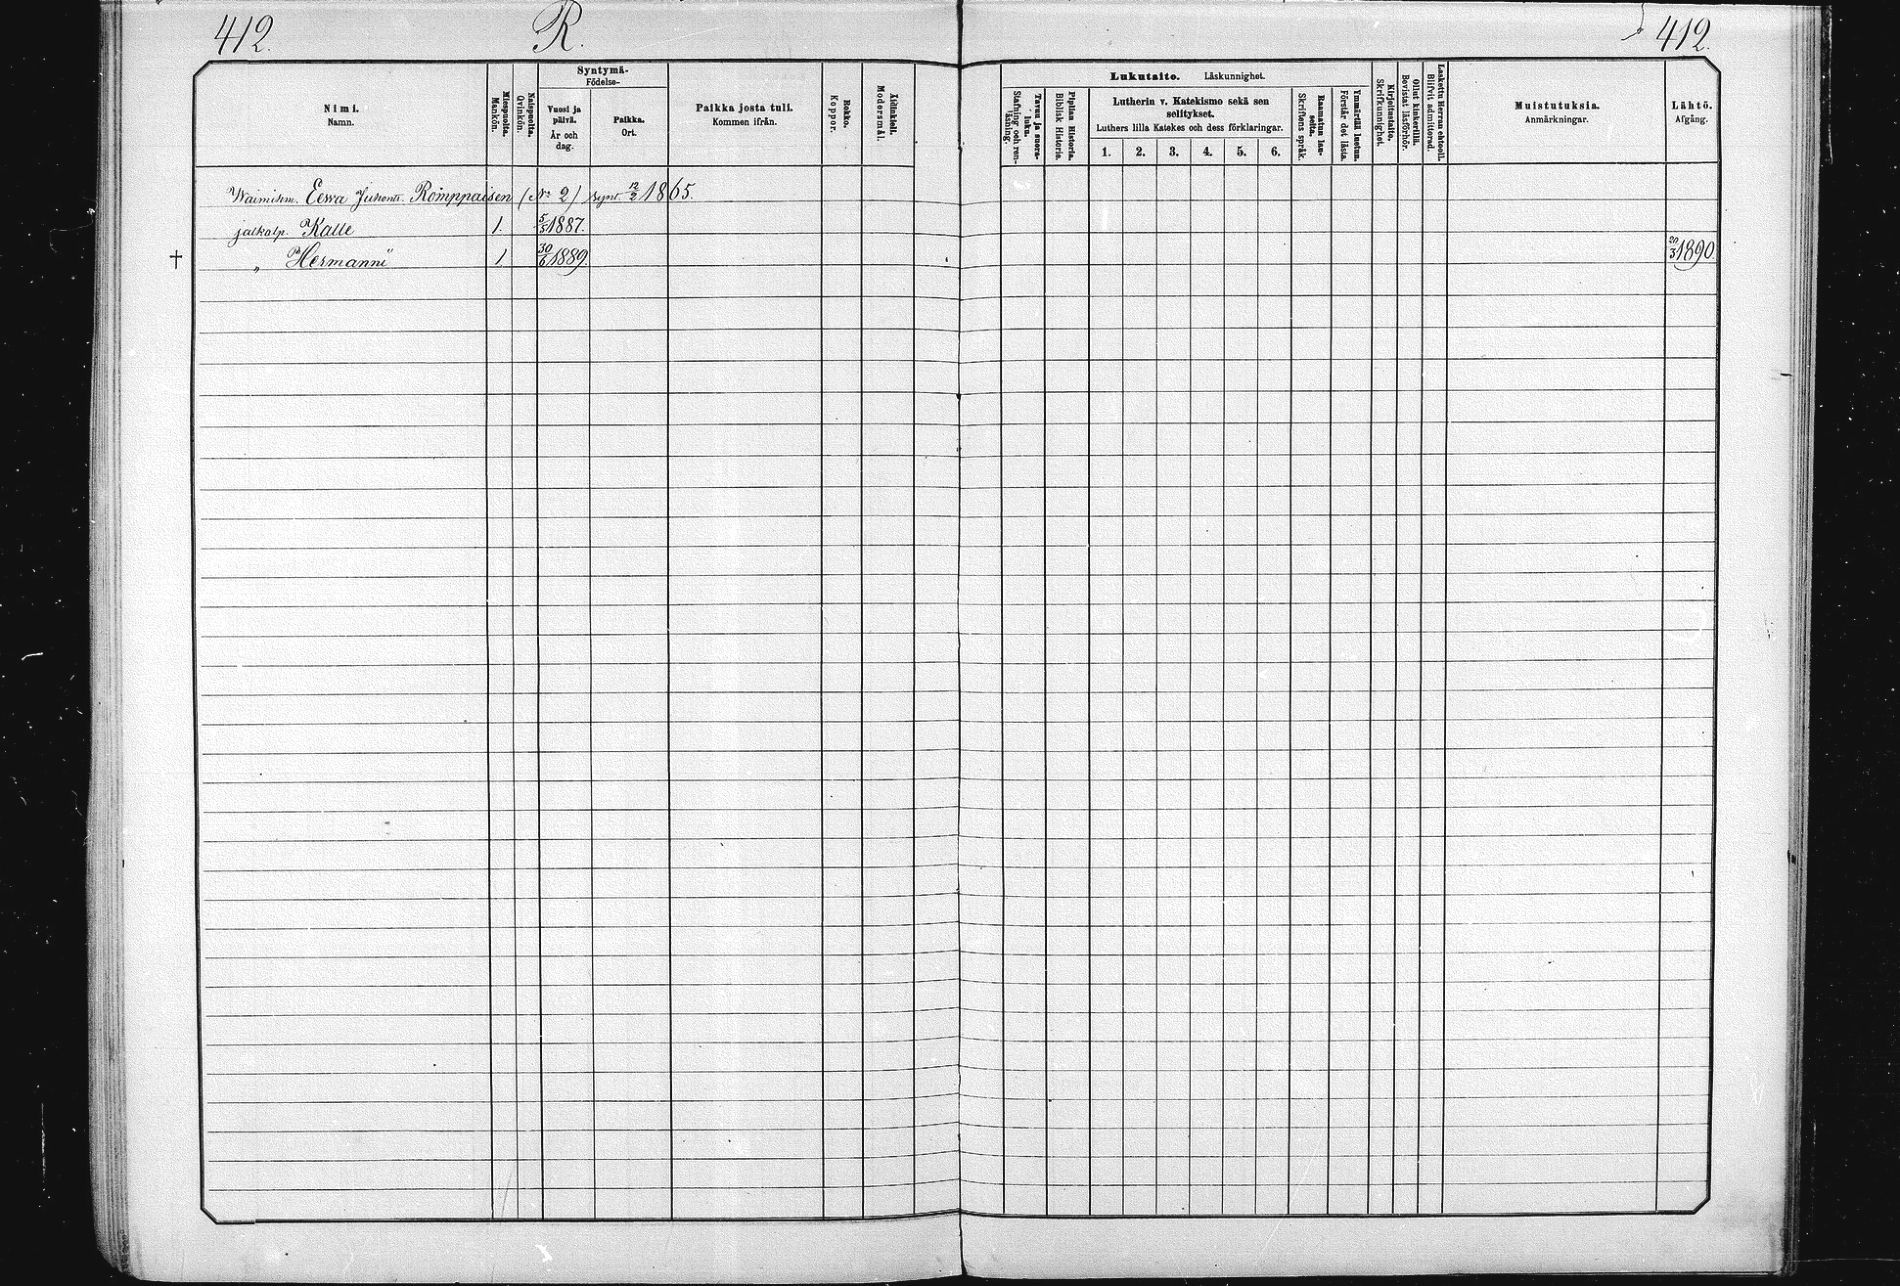 412. R. 412.
Syntymä-
Födelse-
Nimi.
Namn.
Miespuolta.
Mankön.
Naispuolta.
Qvinkön.
Vuosi ja päivä.
År och dag.
Paikka.
Ort.
Paikka josta tuli.
Kommen ifrån.
Rokko.
Koppor.
Äidinkieli.
Modersmål.
Lukutaito. Läskunnighet.
Tavuu ja suora-luku.
Stafning och ren-läsning.
Piplian Historia.
Biblisk Historia.
Lutherin v. Katekismo sekä sen
selitykset.
Luthers lilla Katekes och dess förklaringar.
1. 2. 3. 4. 5. 6.
Raamatun lau-seita.
Skriftens språk.
Ymmärtää luetun.
Förstår det lästa.
Kirjoitustaito.
Skrifkunnighet.
Ollut kinkerillä.
Bevistat läsförhör.
Laskettu Herran ehtool.
Blifvit admitterad.
Muistutuksia.
Anmärkningar.
Lähtö.
Afgång.
Eewa Juhont. Romppaisen (No 2) synt. 12/2 1865.
jalkalp. Kalle 1. 5/5 1887.
† „ Hermanni 1 30/6 1889. 20/3 1890.